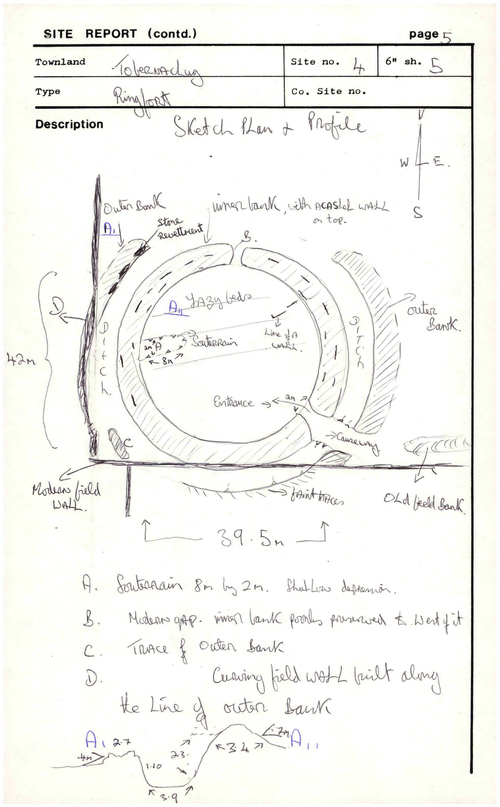 SITE REPORT (contd.) page 5
Townland Tobernaclug Site no. 4 6" sh. 5
Type Ringfort Co. Site no.
Description Sketch Plan & Profile
W E.
S
Outer Bank
A1
Stone Revettment
inner bank, with A CASHEL WALL
on top.
B.
Lazy beds
A11
D
DITCH.
2m A
8m
Souterrain
Line of A
WALL
DITCH
outer
Bank.
42m
Entrance
2m
Causeway
C
Modern field
WALL.
faint traces
Old field Bank.
39.5m
A. Souterrain 8m by 2m. Shallow depression.
B. Modern gap. inner bank poorly preserved to West of it
C. TRACE of Outer BANK
D. Curving field WALL built along
the Line of outer BANK
A1 2.7
.4m
1.10
2.3
3.9
3.4
.7m
A11